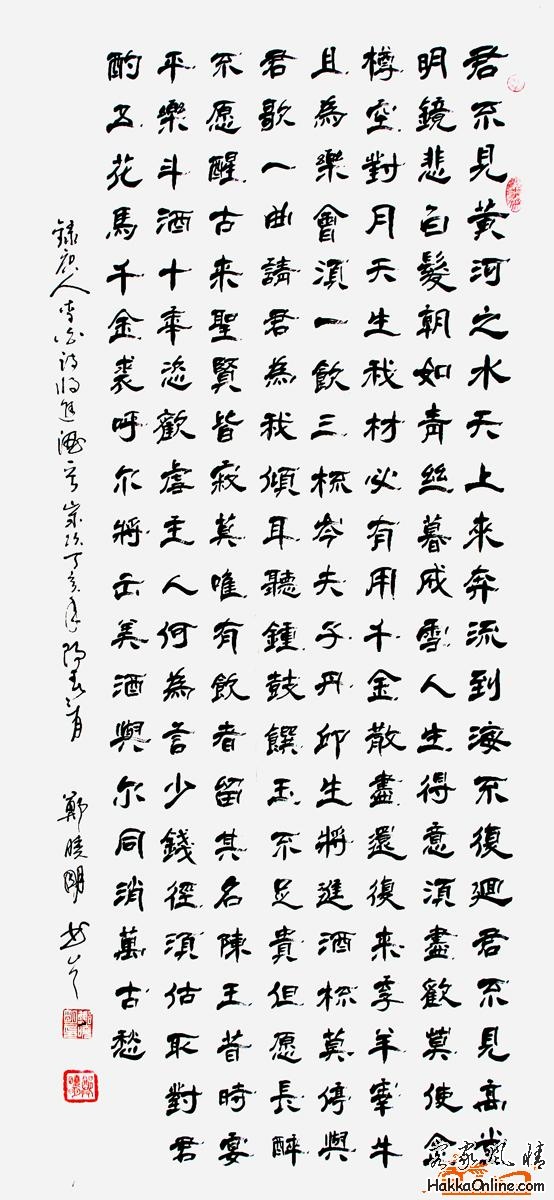 君不見黃河之水天上來奔流到海不復迴君不見高堂
明鏡悲白髮朝如青絲暮成雪人生得意須盡歡莫使金
樽空對月天生我材必有用千金散盡還復來烹羊宰牛
且為樂會須一飲三杯岑夫子丹邱生將進酒杯莫停與
君歌一曲請君為我傾耳聽鍾鼓饌玉不足貴但愿長醉
不愿醒古來聖賢皆寂莫唯有飲者留其名陳王昔時宴
平樂斗酒十千恣歡虐主人何為言少錢徑須估取對君
酌五花馬千金裘呼尔將出美酒與尔同消萬古愁
錄唐人李白詩將進酒歲次丁亥年陽春三月 鄭曉明書
客家風情
HakkaOnline.com